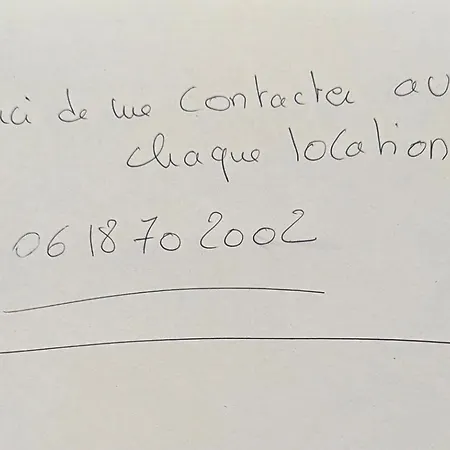 ci de me contacter au
chaque location
06 18 70 2002